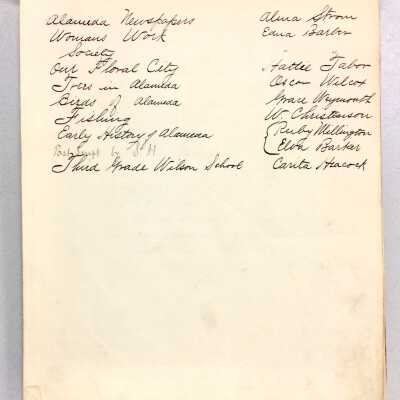 Alameda Newspapers Alma Strom
Womans Work Edna Barber
Society
Our Floral City Hattie Tabor
Trees in Alameda Oscar Wilcox
Birds of Alameda Grace Weymouth
Fishing W. Christenson
Early History of Alameda Ruby Wellington
Elva Barker
by
Third Grade Wilson School Carita Heacock